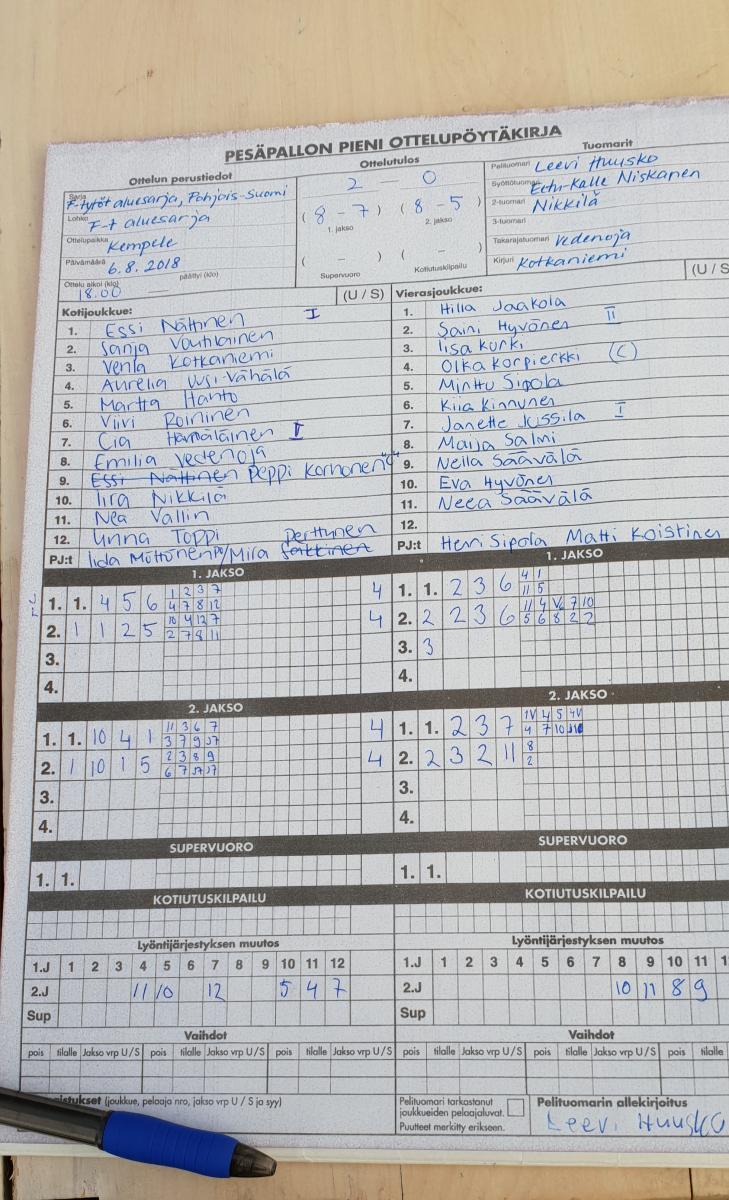 PESÄPALLON PIENI OTTELUPÖYTÄKIRJA
Ottelun perustiedot
Ottelutulos
Tuomarit
Sarja F-tytöt aluesarja, Pohjois-Suomi
2 - 0
Pelituomari Leevi Huusko
Lohko F-t aluesarja
(8 - 7) (8 - 5)
1. jakso 2. jakso
Syöttötuomari Eetu-Kalle Niskanen
Ottelupaikka Kempele
2-tuomari Nikkilä
3-tuomari
Päivämäärä 6.8.2018
( - ) ( - )
Takarajatuomari Vedenoja
Ottelu alkoi (klo) 18.00 päättyi (klo)
Supervuoro Kotiutuskilpailu
Kirjuri Kotkaniemi
Kotijoukkue: (U / S)
1. Essi Nättinen I
2. Sanja Voutilainen
3. Venla Kotkaniemi
4. Aurelia Uusi-Vähälä
5. Martta Hanto
6. Viivi Roininen
7. Cia Hämäläinen I
8. Emilia Vedenoja
9. Essi Nättinen Peppi Korhonen "C"
10. Iira Nikkilä
11. Nea Vallin
12. Unna Toppi
PJ:t Iida Möttönen / Mira Sarkkinen Perttunen
Vierasjoukkue: (U / S
1. Hilla Jaakola
2. Saini Hyvönen II
3. Iisa Kurki
4. Olka Korpierkki (C)
5. Minttu Sipola
6. Kiia Kinnunen
7. Janette Jussila I
8. Maija Salmi
9. Nella Säävälä
10. Eva Hyvönen
11. Neea Säävälä
12.
PJ:t Heri Sipola Matti Koistinen
1. JAKSO
1. 1. 4 5 6 1 2 3 7 4
4 7 8 12
2. 1 1 2 5 10 4 12 7 4
2 7 8 11
3.
4.
1. JAKSO
1. 1. 2 3 6 4 1
11 5
2. 2 2 3 6 11 4 7 10
5 6 8 2 2
3. 3
4.
2. JAKSO
1. 1. 10 4 1 11 3 6 7 4
3 7 9
2. 1 10 1 5 2 3 8 9 4
6 7
3.
4.
2. JAKSO
1. 1. 2 3 7 1V 4 5 4V
4 7 10
2. 2 3 2 11 8
2
3.
4.
SUPERVUORO
1. 1.
SUPERVUORO
1. 1.
KOTIUTUSKILPAILU
KOTIUTUSKILPAILU
Lyöntijärjestyksen muutos
1.J 1 2 3 4 5 6 7 8 9 10 11 12
2.J 11 10 12 5 4 7
Sup
Lyöntijärjestyksen muutos
1.J 1 2 3 4 5 6 7 8 9 10 11 1
2.J 10 11 8 9
Sup
Vaihdot
pois tilalle Jakso vrp U / S pois tilalle Jakso vrp U / S pois tilalle Jakso vrp U / S
Vaihdot
pois tilalle Jakso vrp U / S pois tilalle Jakso vrp U / S pois tilalle
istukset (joukkue, pelaaja nro, jakso vrp U / S ja syy)
Pelituomari tarkastanut
joukkueiden pelaajaluvat.
Puutteet merkitty erikseen.
Pelituomarin allekirjoitus
Leevi Huusko